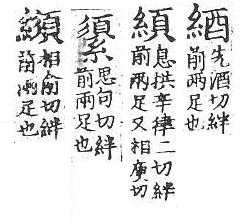 綇先酒切絆
前兩足也
息拱辛律二切絆
前兩足又相庾切
思句切絆
前兩足也
相俞切絆
前兩足也